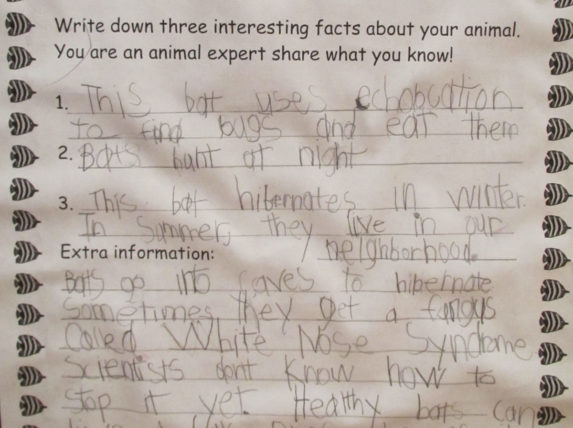 Write down three interesting facts about your animal.
You are an animal expert share what you know!
1. This bat uses echolocation
to find bugs and eat them
2. Bats hunt at night
3. This bat hibernates in winter.
In Summer, they live in our
neighborhood.
Extra information:
Bats go into caves to hibernate
Sometimes they get a fungus
Called White Nose Syndrome
Scientists dont know how to
stop it yet. Healthy bats can